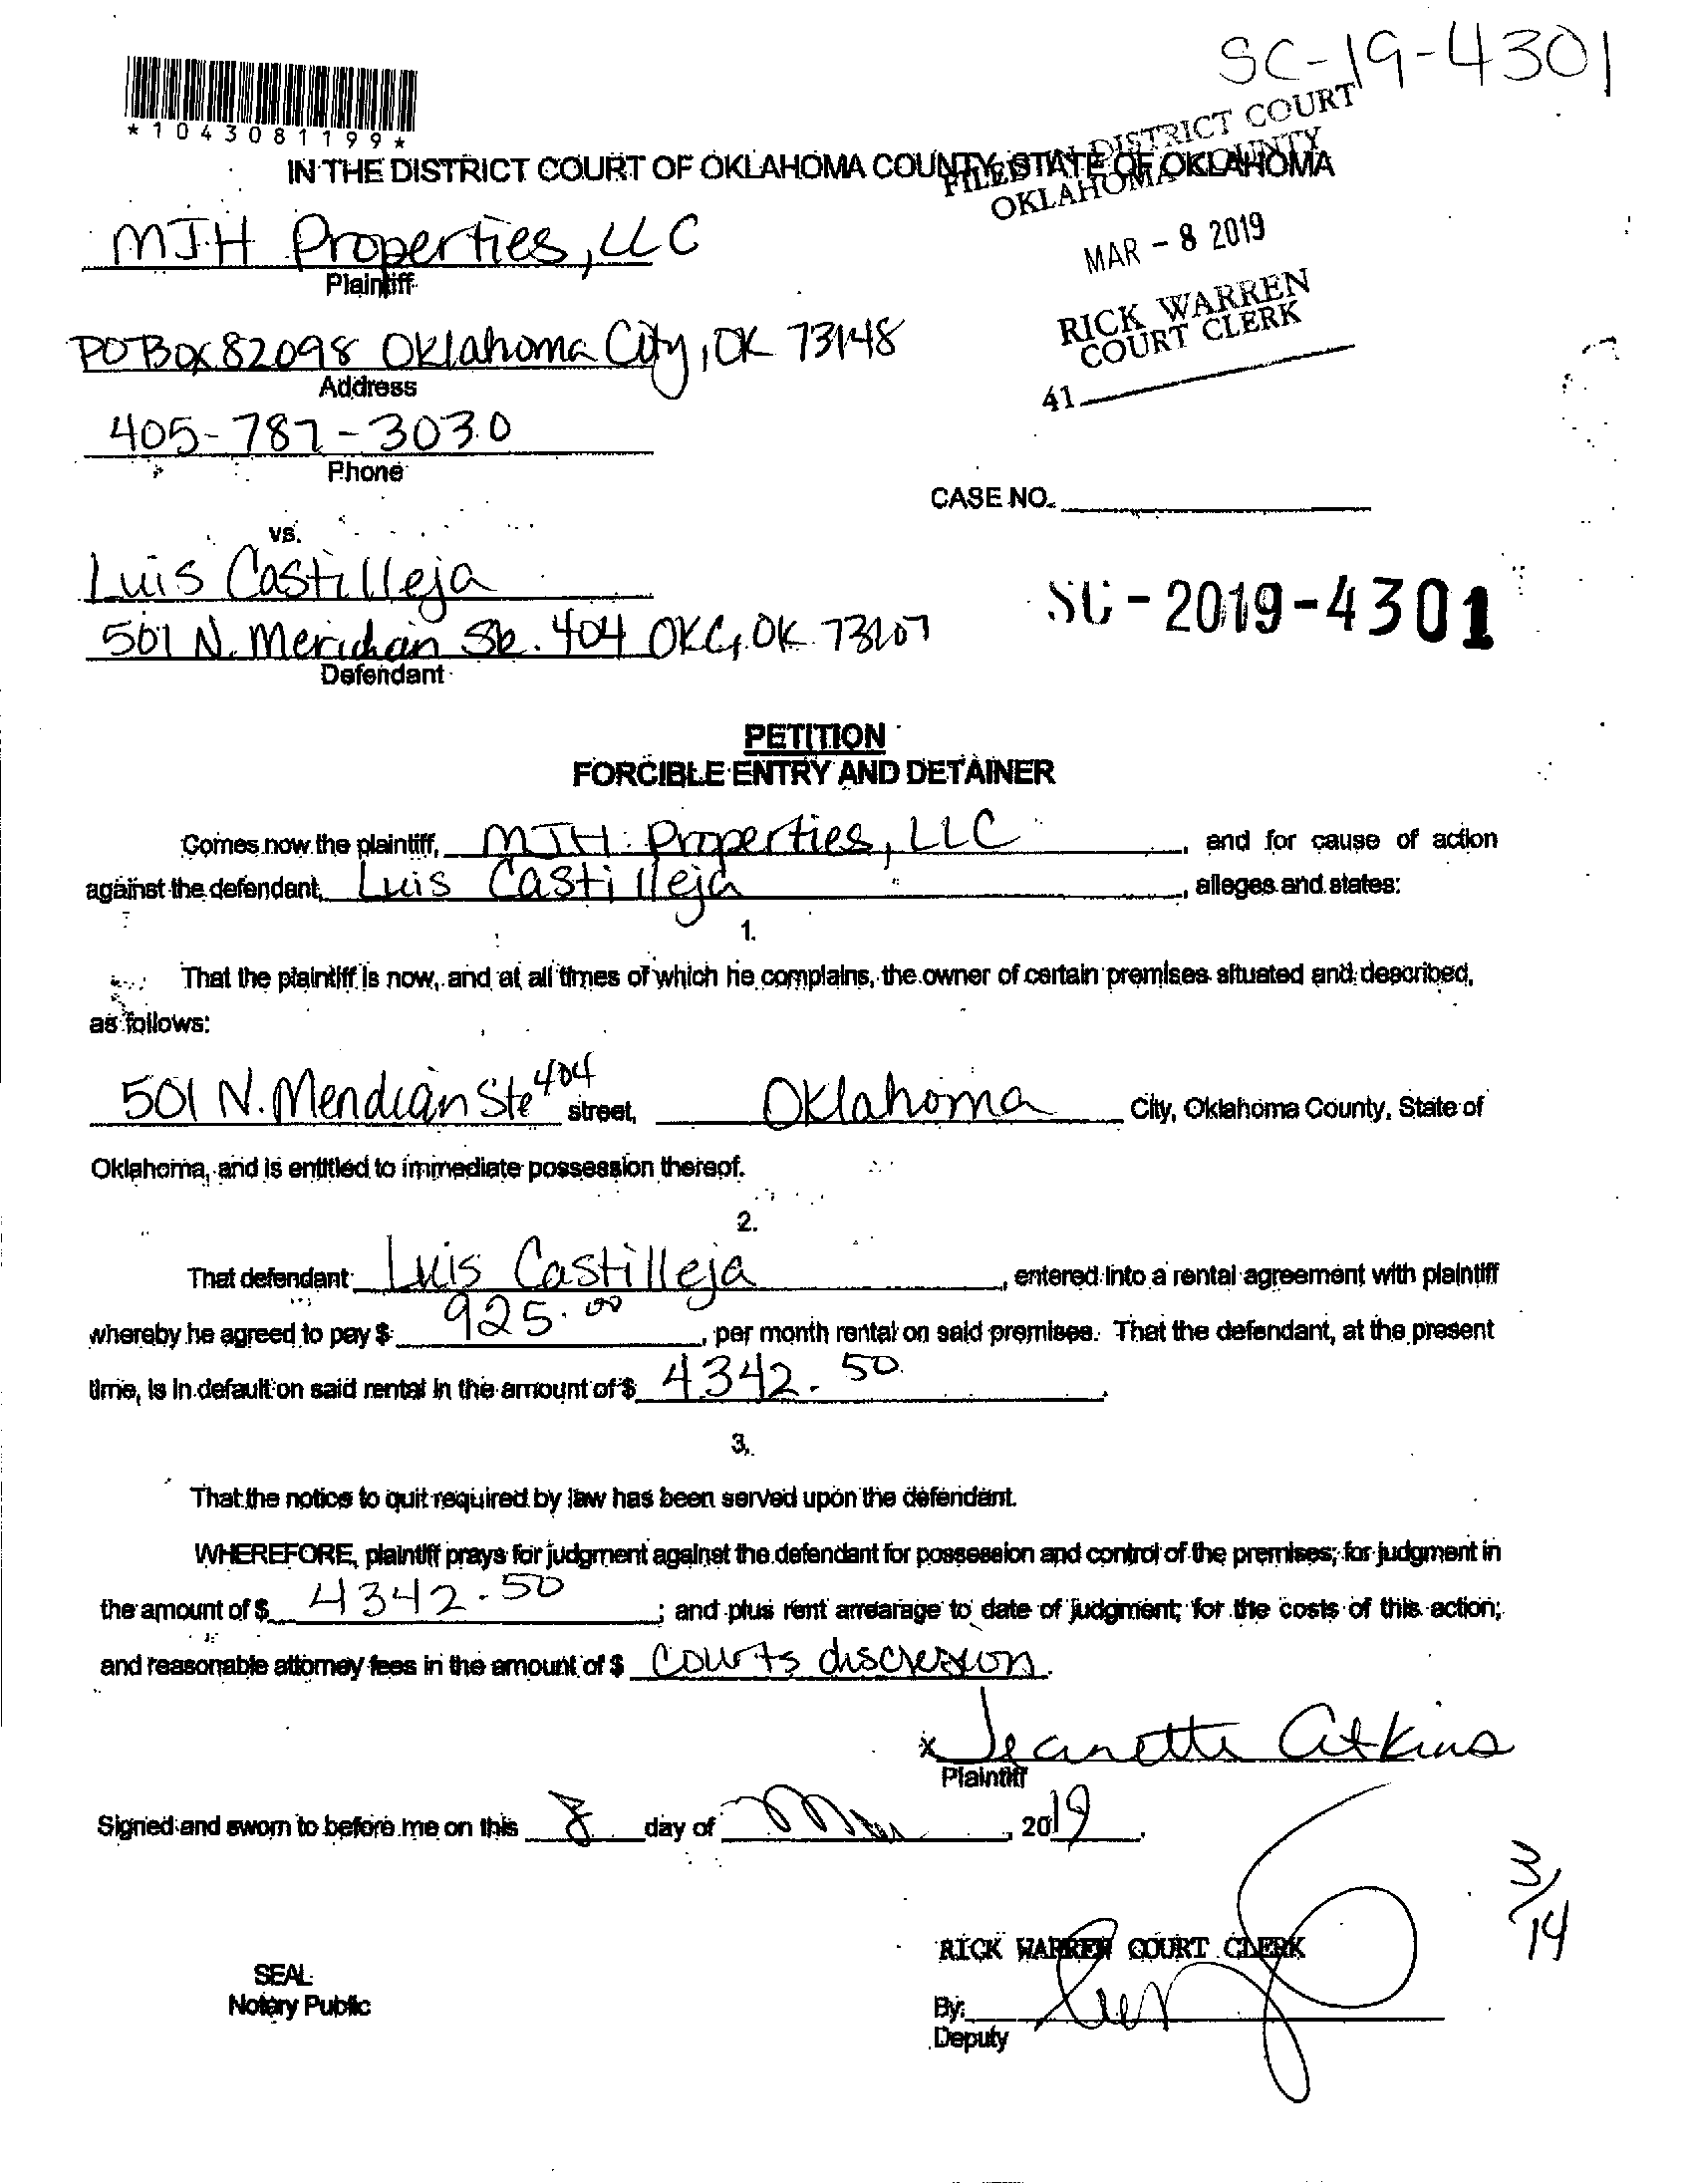 SC-19-4301
*1043081199*
FILED IN DISTRICT COURT
OKLAHOMA COUNTY
IN THE DISTRICT COURT OF OKLAHOMA COUNTY, STATE OF OKLAHOMA
MAR - 8 2019
RICK WARREN
COURT CLERK
41
MJH Properties, LLC
Plaintiff
PO Box 82098 Oklahoma City, OK 73148
Address
405-787-3030
Phone
CASE NO.
vs.
Luis Castilleja
SC-2019-4301
501 N. Meridian Ste. 404 OKC, OK 73107
Defendant
PETITION
FORCIBLE ENTRY AND DETAINER
Comes now the plaintiff, MJH Properties, LLC, and for cause of action
against the defendant, Luis Castilleja, alleges and states:
1.
That the plaintiff is now, and at all times of which he complains, the owner of certain premises situated and described,
as follows:
501 N. Meridian Ste 404 street, Oklahoma City, Oklahoma County, State of
Oklahoma, and is entitled to immediate possession thereof.
2.
That defendant Luis Castilleja, entered into a rental agreement with plaintiff
whereby he agreed to pay $ 925.00, per month rental on said premises. That the defendant, at the present
time, is in default on said rental in the amount of $ 4342.50.
3.
That the notice to quit required by law has been served upon the defendant.
WHEREFORE, plaintiff prays for judgment against the defendant for possession and control of the premises; for judgment in
the amount of $ 4342.50; and plus rent arrearage to date of judgment; for the costs of this action;
and reasonable attorney fees in the amount of $ Courts discresion.
x Jeanette Atkins
Plaintiff
Signed and sworn to before me on this 8 day of Mar, 2019.
3/14
RICK WARREN COURT CLERK
SEAL
Notary Public
By:
Deputy